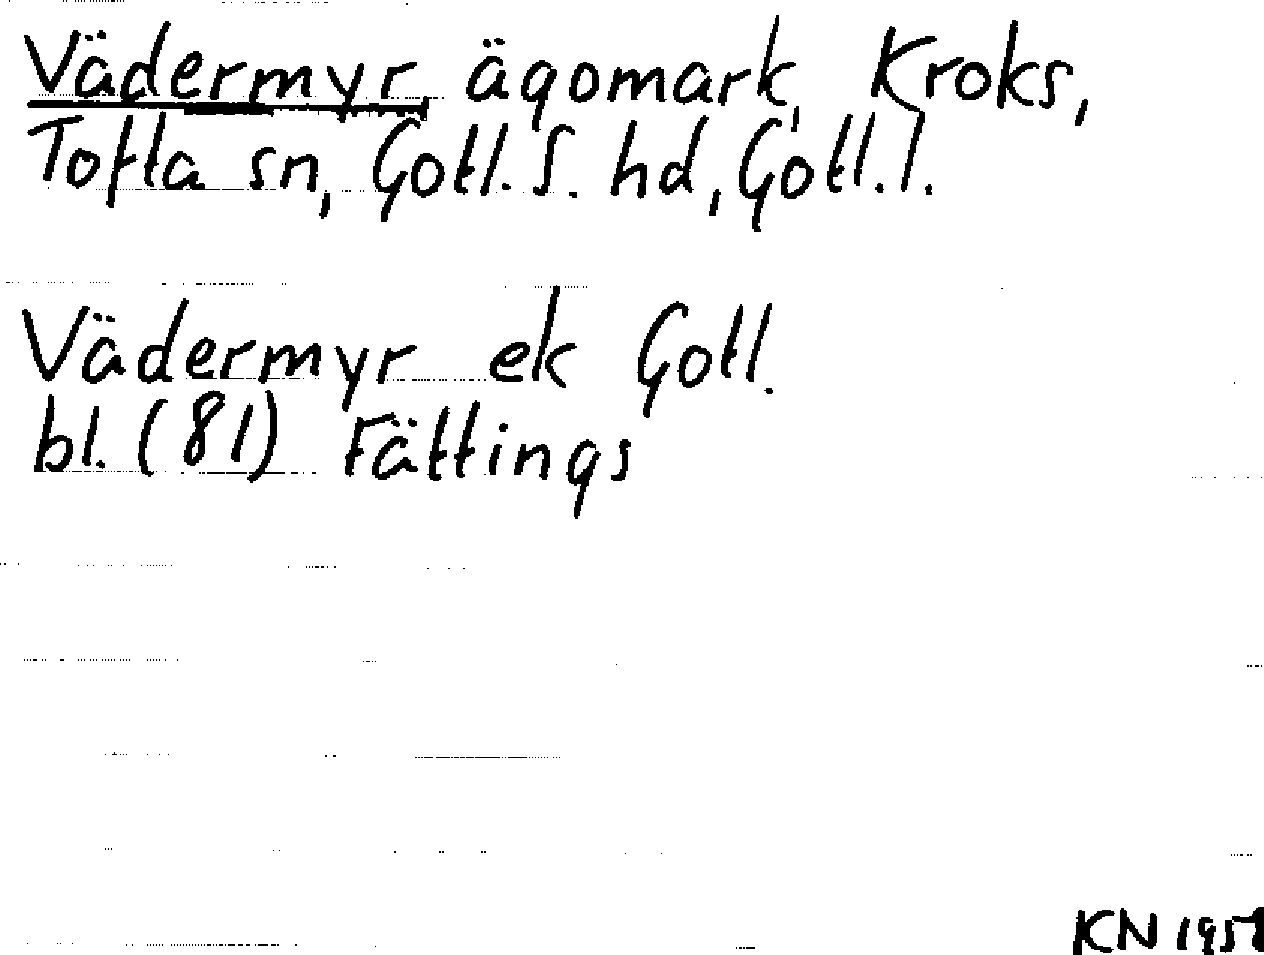 Vädermyr, ägomark, Kroks,
Tofta sn, Gotl. S. hd, Gotl. l.
Vädermyr ek Gotl.
bl. (81) Fättings
KN 1951